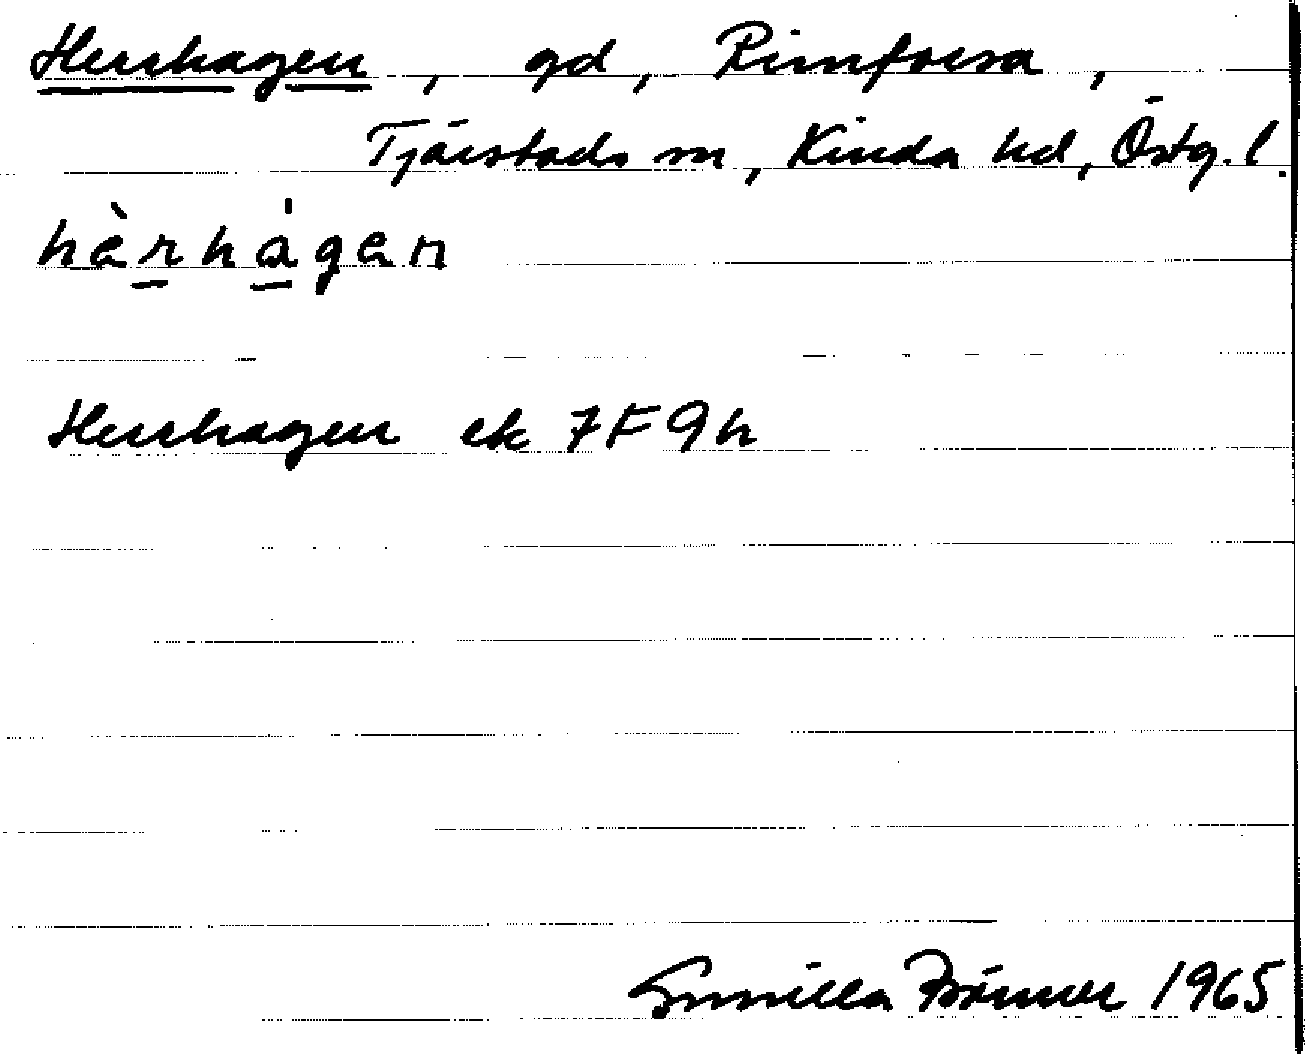 Herrhagen, gd, Rimforsa,
Tjärstads sn, Kinda hd, Östg. l.
hèrhágen
Herrhagen ek 7F9h
Gunilla 1965